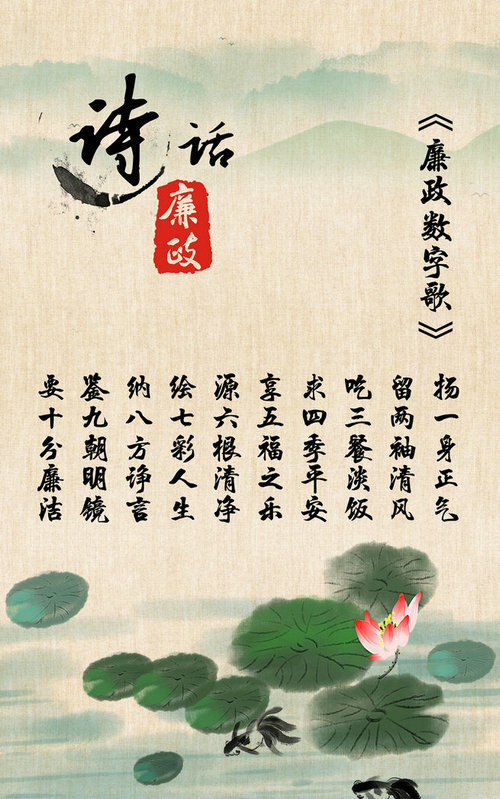 诗话
廉政
《廉政数字歌》
扬一身正气
留两袖清风
吃三餐淡饭
求四季平安
享五福之乐
源六根清净
绘七彩人生
纳八方诤言
鉴九朝明镜
要十分廉洁